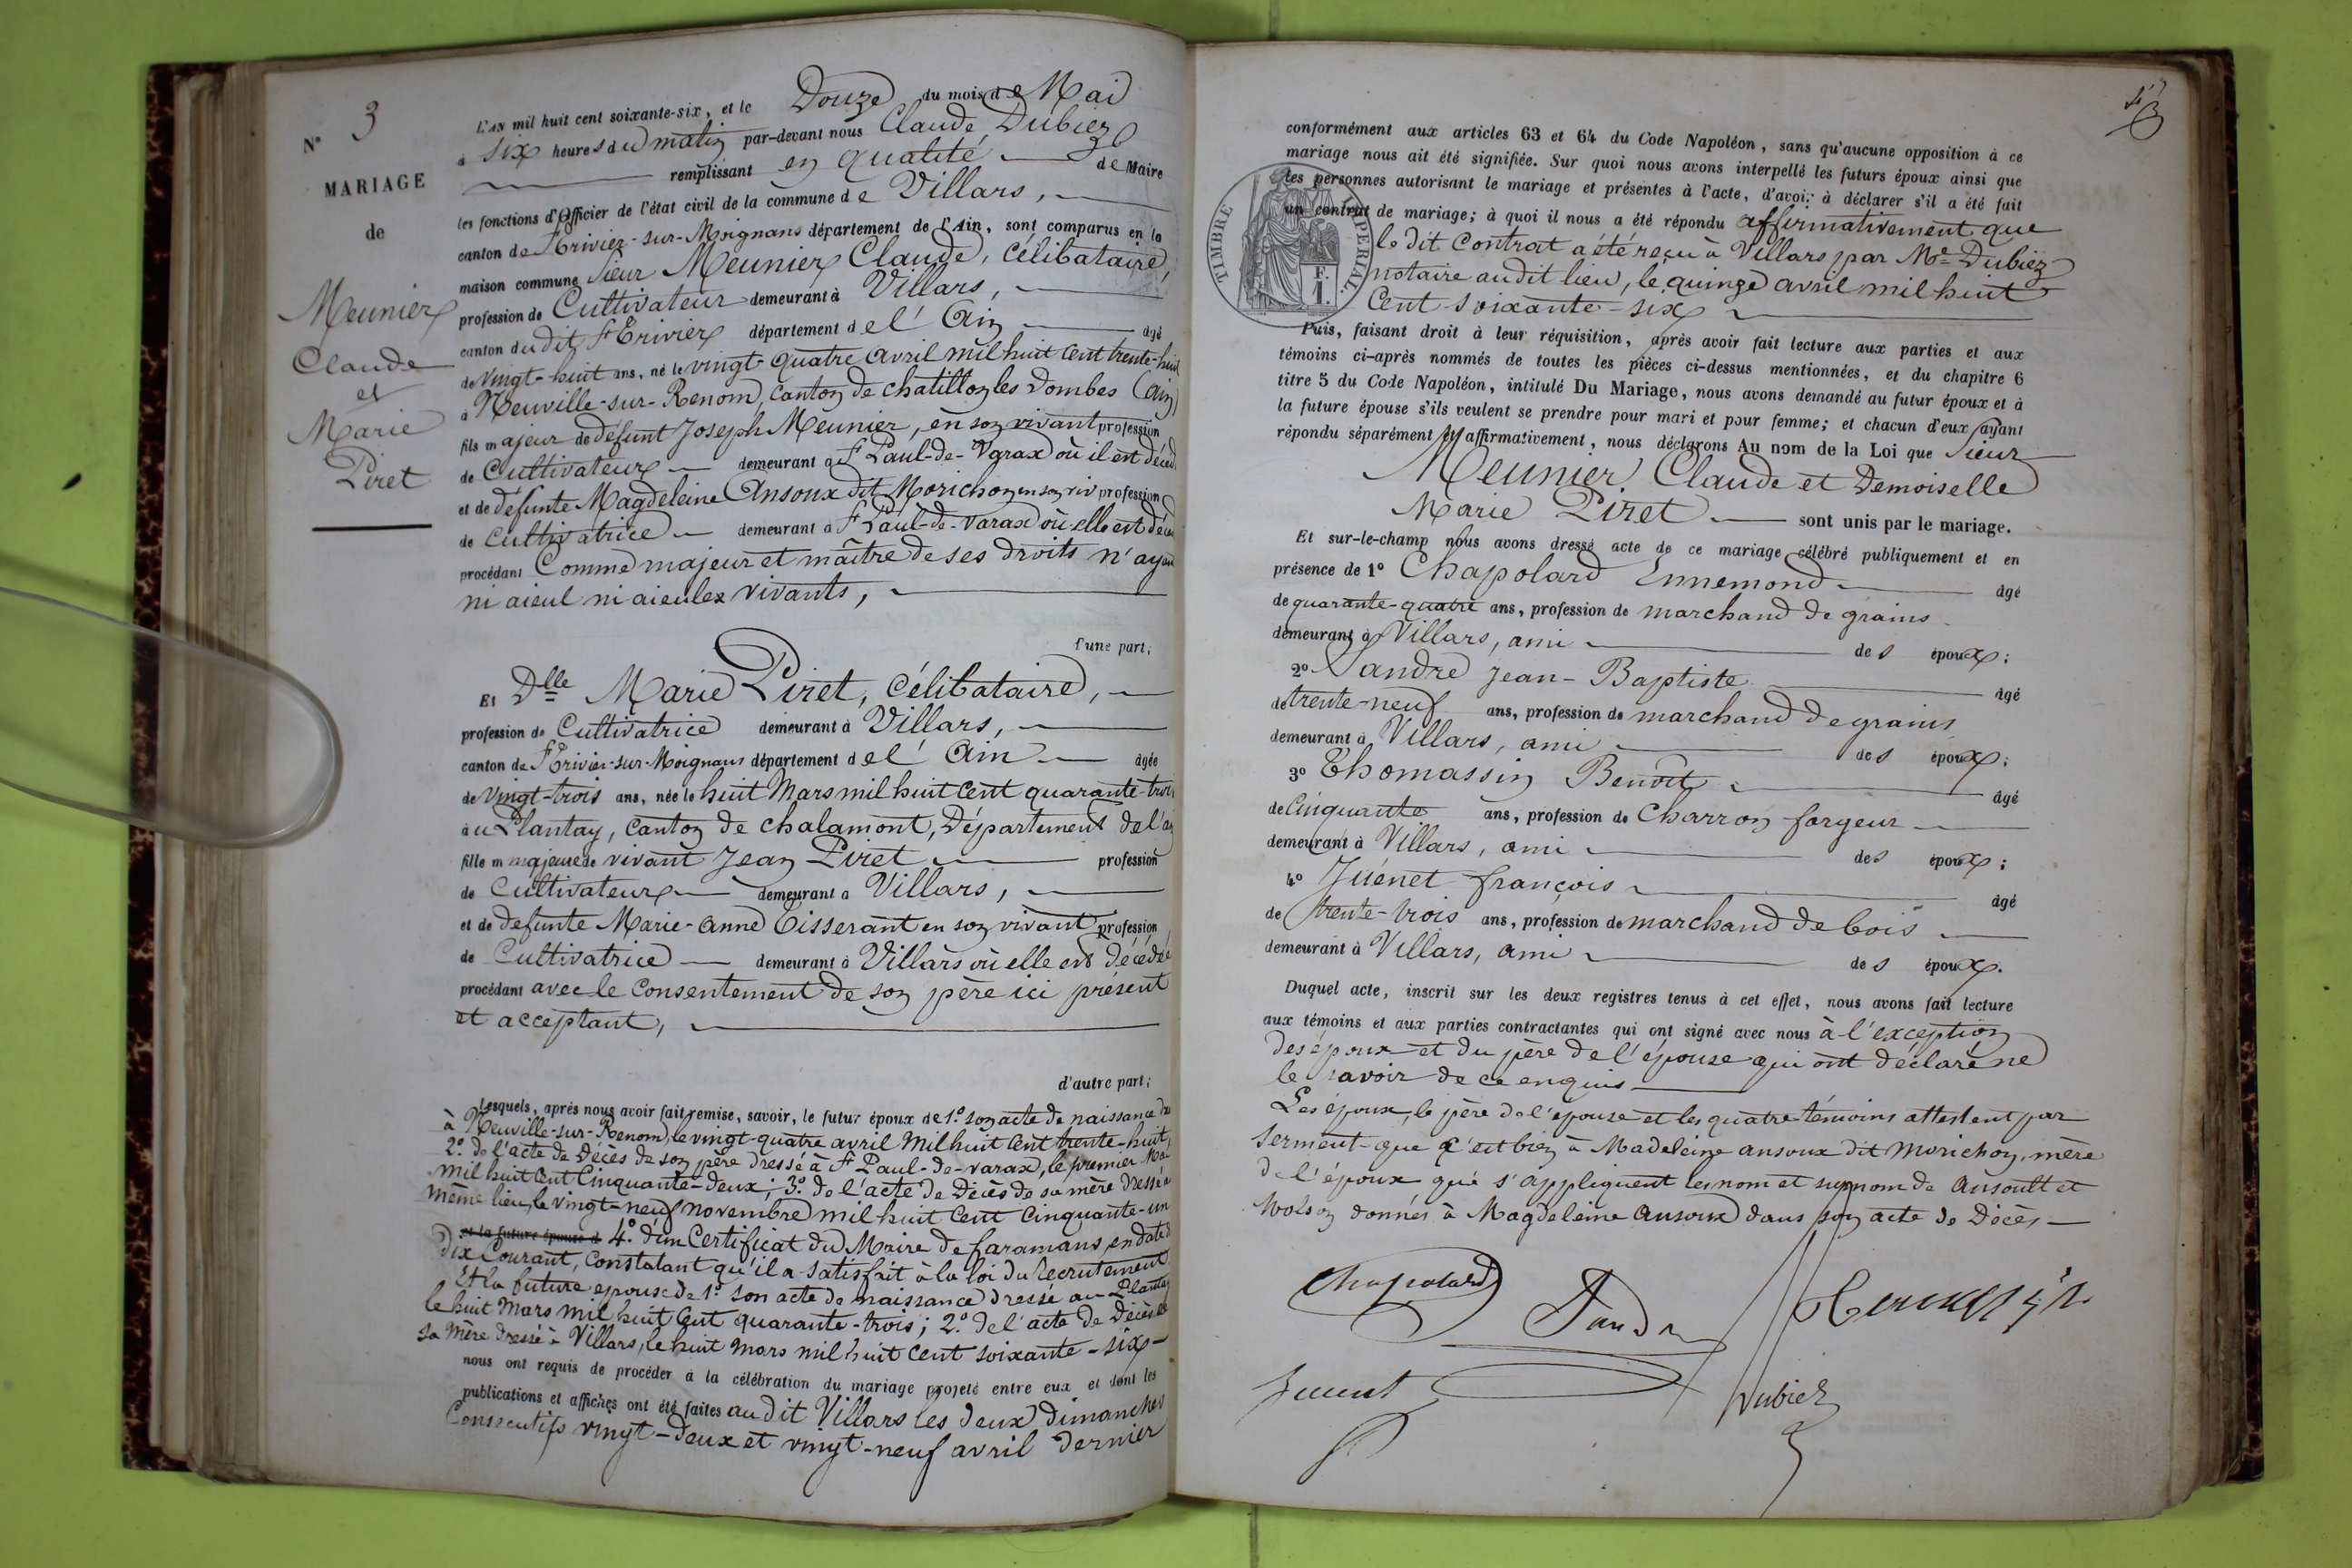 N° 3
MARIAGE
de
Meunier
Claude
et
Marie
Piret
L'AN mil huit cent soixante-six, et le Douze du mois de Mai
à six heures du matin par-devant nous Claude Dubiez
remplissant en qualité de Maire
les fonctions d'Officier de l'état civil de la commune de Villars,
canton de St Trivier-sur-Moignans département de l'Ain, sont comparus en la
maison commune Sieur Meunier Claude, célibataire,
profession de Cultivateur demeurant à Villars,
canton du dit St Trivier département de l'Ain âgé
de vingt-huit ans, né le vingt-quatre avril mil huit cent trente-huit
à Neuville-sur-Renom, canton de chatillon les Dombes (ain)
fils majeur de défunt Joseph Meunier, en son vivant profession
de Cultivateur demeurant à St Paul-de-Varax où il est décédé
et de défunte Magdeleine Ansoux dit Morichon en son viv profession
de Cultivatrice demeurant à St Paul-de-Varax où elle est décé
procédant Comme majeur et maître de ses droits n'ayant
ni aieul ni aieules vivants,
d'une part;
Et Dlle Marie Piret, célibataire,
profession de Cultivatrice demeurant à Villars,
canton de St Trivier-sur-Moignans département de l'Ain âgée
de vingt-trois ans, née le huit Mars mil huit cent quarante-trois
au Plantay, Canton de chalamont, Département de l'ain
fille majeure de vivant Jean Piret profession
de Cultivateur demeurant à Villars,
et de defunte Marie-anne Tisserant en son vivant profession
de Cultivatrice demeurant à Villars où elle est décédée
procédant avec le Consentement de son père ici présent
et acceptant,
d'autre part;
Lesquels, après nous avoir fait remise, savoir, le futur époux de 1° son acte de naissance
à Neuville-sur-Renom, le vingt-quatre avril Mil huit Cent trente-huit,
2° de l'acte de Décès de son père dressé à St Paul-de-varax, le premier Mai
mil huit Cent Cinquante-deux; 3° de l'acte de Décès de sa mère dressé a
même lieu, le vingt-neuf novembre mil huit Cent Cinquante-un
et la future épouse d 4° d'un Certificat du Maire de faramans, en date d
dix Courant, Constatant qu'il a satisfait à la loi du recrutement
Et la future epouse de 1° son acte de naissance dressé au Plantay
le huit Mars mil huit Cent quarante-trois; 2° de l'acte de Décès de
sa Mère dressé à Villars, le huit Mars mil huit cent soixante-six
nous ont requis de procéder à la célébration du mariage projeté entre eux et dont les
publications et affiches ont été faites au dit Villars les deux dimanches
Consecutifs vingt-deux et vingt-neuf avril dernier
conformément aux articles 63 et 64 du Code Napoléon, sans qu'aucune opposition à ce
mariage nous ait été signifiée. Sur quoi nous avons interpellé les futurs époux ainsi que
les personnes autorisant le mariage et présentes à l'acte, d'avoir à déclarer s'il a été fait
un contrat de mariage; à quoi il nous a été répondu affirmativement que
le dit Contrat a été reçu à Villars par Me Dubiez
notaire au dit lieu, le quinze avril mil huit
Cent soixante-six
TIMBRE IMPERIAL
F.
1.
Puis, faisant droit à leur réquisition, après avoir fait lecture aux parties et aux
témoins ci-après nommés de toutes les pièces ci-dessus mentionnées, et du chapitre 6
titre 5 du Code Napoléon, intitulé Du Mariage, nous avons demandé au futur époux et à
la future épouse s'ils veulent se prendre pour mari et pour femme; et chacun d'eux ayant
répondu séparément et affirmativement, nous déclarons Au nom de la Loi que Sieur
Meunier Claude et Demoiselle
Marie Piret sont unis par le mariage.
Et sur-le-champ nous avons dressé acte de ce mariage célébré publiquement et en
présence de 1° Chapolard Ennemond âgé
de quarante-quatre ans, profession de marchand de grains
demeurant à Villars, ami des époux;
2° Sandre Jean-Baptiste âgé
de trente-neuf ans, profession de marchand de grains
demeurant à Villars, ami des époux;
3° Thomassin Benoit âgé
de Cinquante ans, profession de Charron forgeur
demeurant à Villars, ami des époux;
4° Juénet françois âgé
de trente-trois ans, profession de marchand de bois
demeurant à Villars, ami des époux.
Duquel acte, inscrit sur les deux registres tenus à cet effet, nous avons fait lecture
aux témoins et aux parties contractantes qui ont signé avec nous à l'exception
des époux et du père de l'épouse qui ont déclaré ne
le savoir de ce enquis
Les époux, le père de l'épouse et les quatre témoins attestent par
serment que c'est bien à Madeleine ansoux dit Morichon, mère
de l'époux que s'appliquent les nom et surnom de Ansoult et
Wolson donnés à Magdeleine Ansoux dans son acte de Décès
Chapolard
Sandre
Juenet
Dubiez